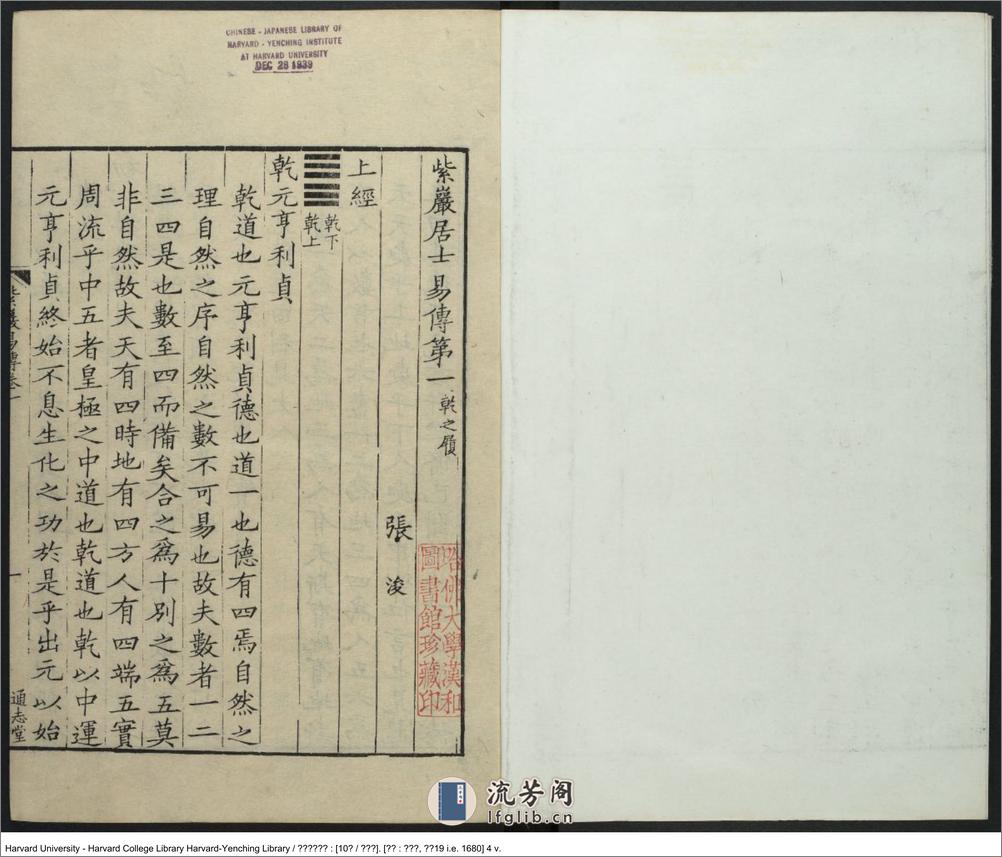 CHINESE - JAPANESE LIBRARY OF
HARVARD - YENCHING INSTITUTE
AT HARVARD UNIVERSITY
DEC 28 1939
紫巖居士易傳第一 乾之履
張 浚
哈佛大學漢和
圖書館珍藏印
上經
乾下
乾上
乾元亨利貞
乾道也元亨利貞德也道一也德有四焉自然之
理自然之序自然之數不可易也故夫數者一二
三四是也數至四而備矣合之爲十別之爲五莫
非自然故夫天有四時地有四方人有四端五實
周流乎中五者皇極之中道也乾道也乾以中運
元亨利貞終始不息生化之功於是乎出元以始
紫巖易傳卷一
一
通志堂
流芳阁
lfglib.cn
Harvard University - Harvard College Library Harvard-Yenching Library / ?????? : [10? / ???]. [?? : ???, ??19 i.e. 1680] 4 v.